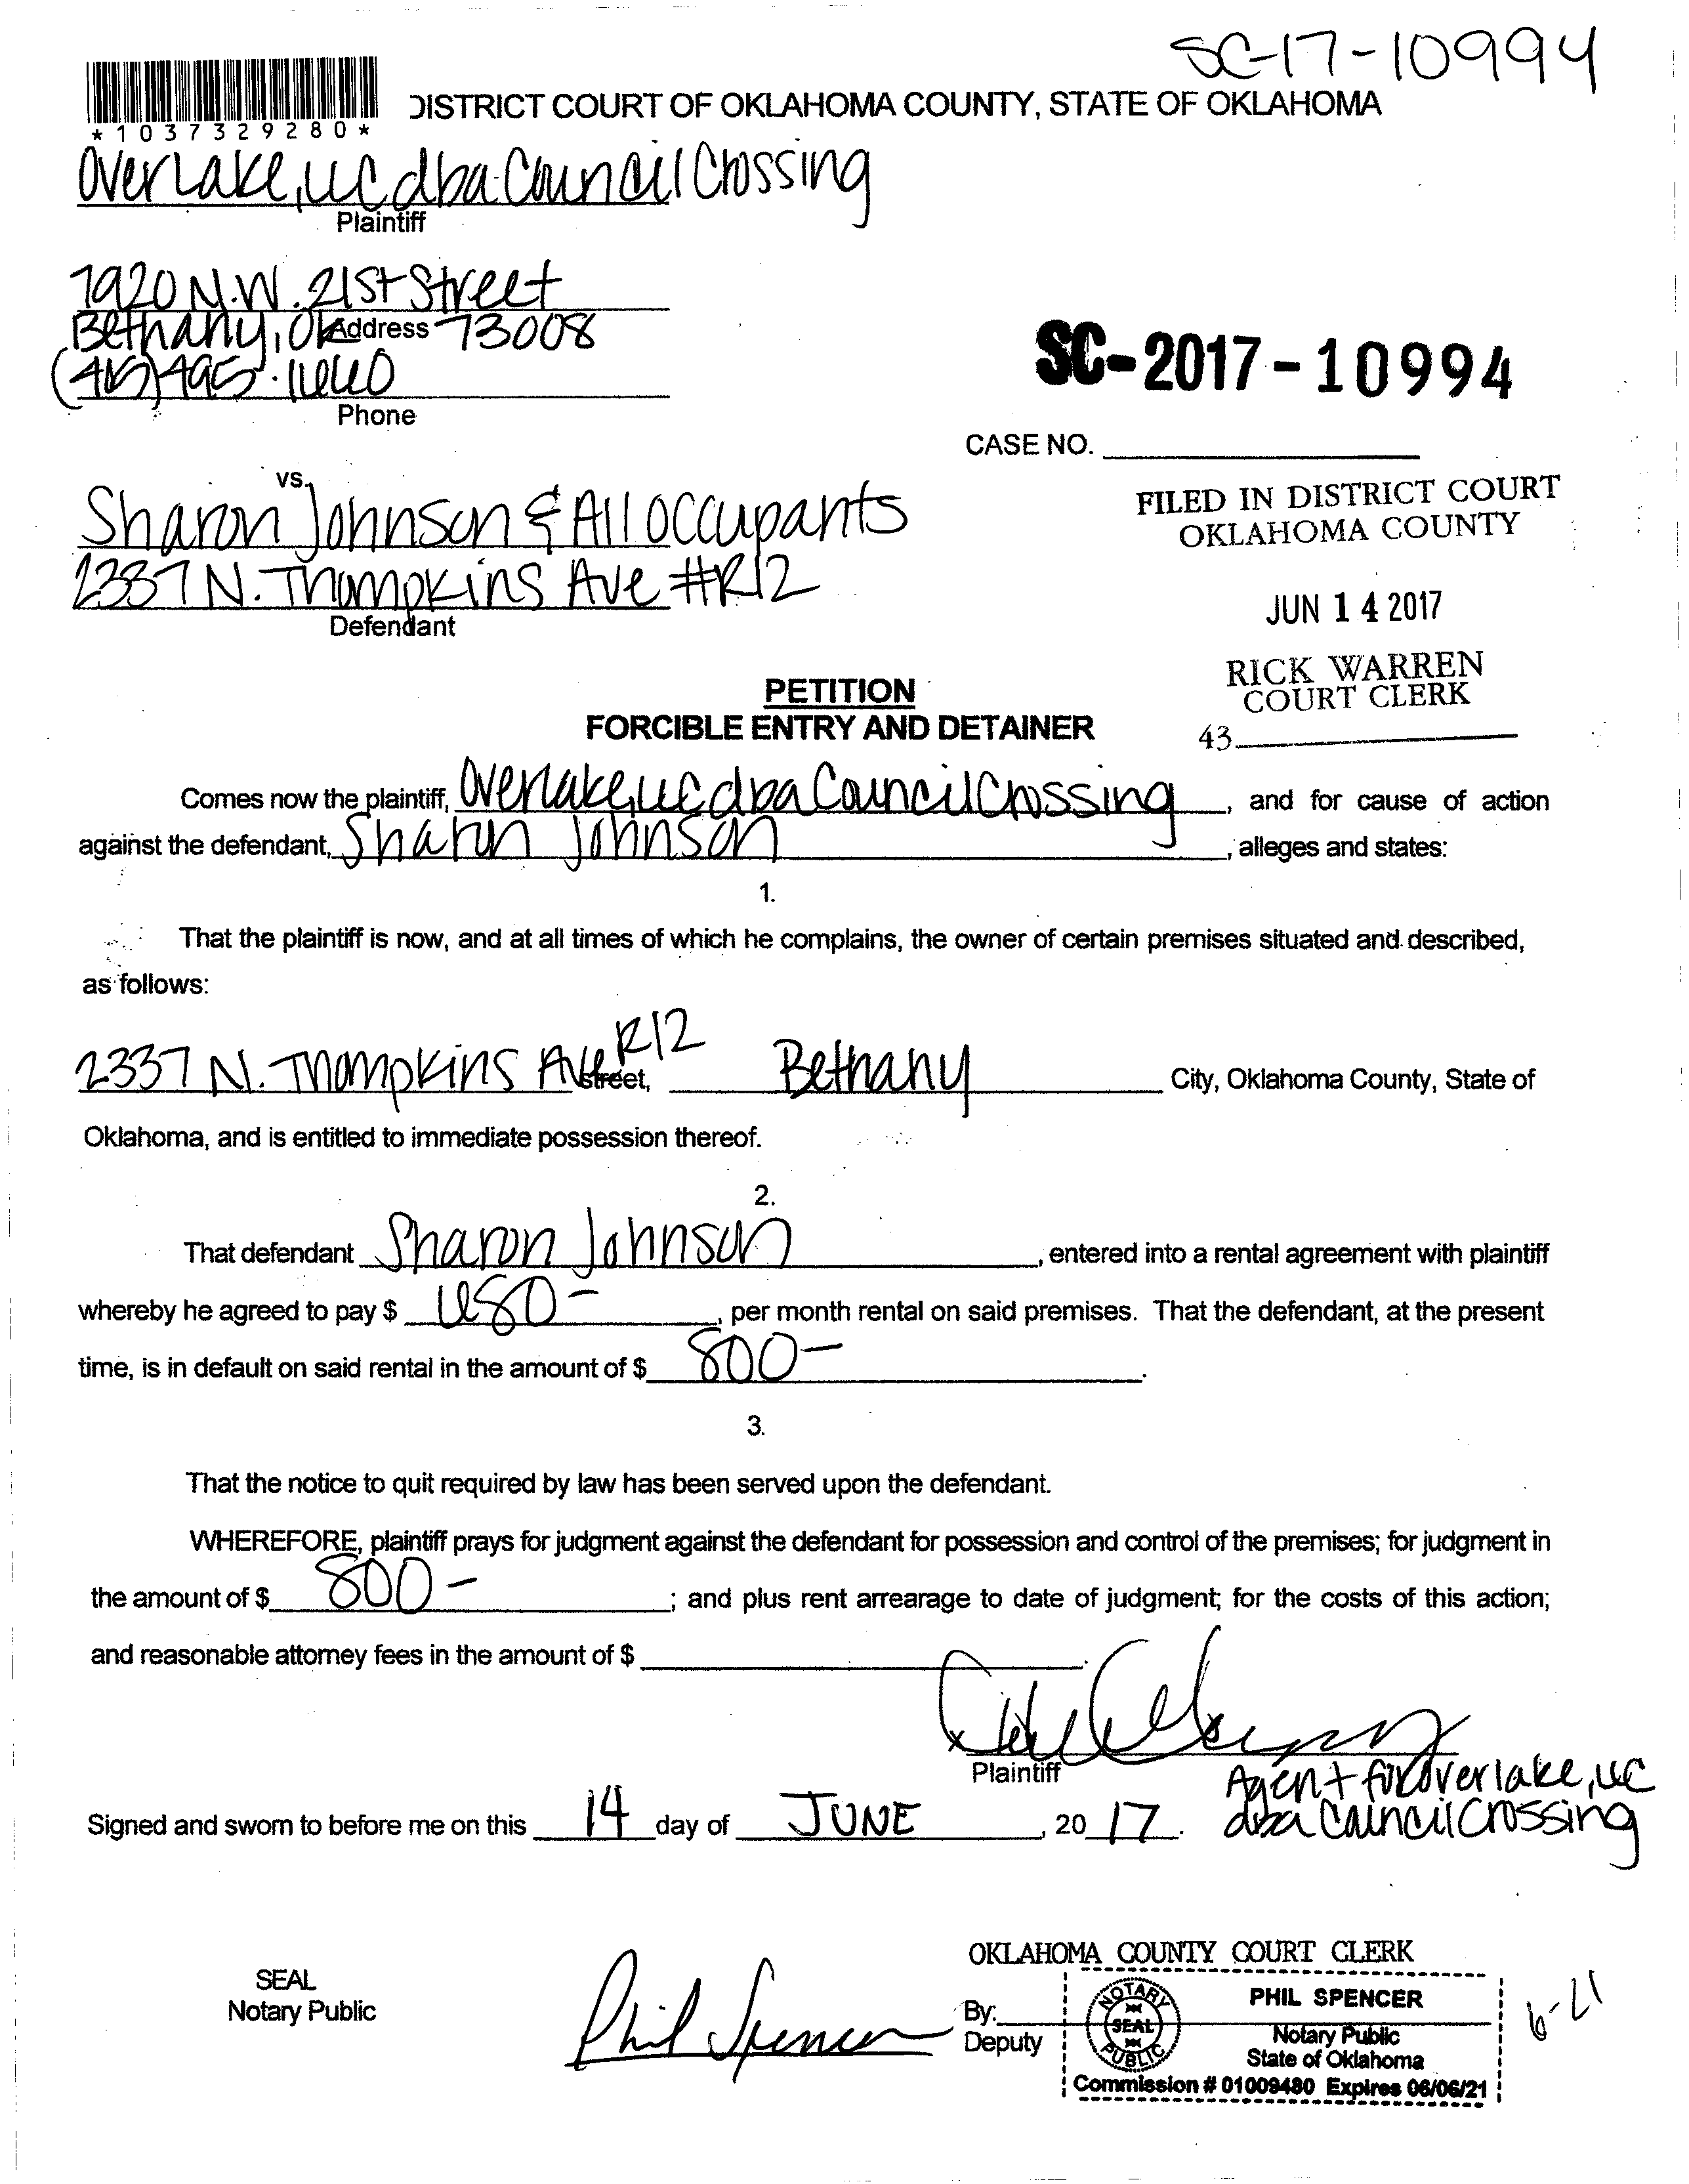 SC-17-10994
*1037329280*
DISTRICT COURT OF OKLAHOMA COUNTY, STATE OF OKLAHOMA
Overlake, LLC dba Council Crossing
Plaintiff
7920 N.W. 21st Street
Bethany, OK 73008
Address
(405) 495-1660
Phone
SC-2017-10994
CASE NO.
vs.
Sharon Johnson & All Occupants
2337 N. Thompkins Ave #R12
Defendant
FILED IN DISTRICT COURT
OKLAHOMA COUNTY
JUN 14 2017
RICK WARREN
COURT CLERK
43
PETITION
FORCIBLE ENTRY AND DETAINER
Comes now the plaintiff, Overlake, LLC dba Council Crossing, and for cause of action
against the defendant, Sharon Johnson, alleges and states:
1.
That the plaintiff is now, and at all times of which he complains, the owner of certain premises situated and described,
as follows:
2337 N. Thompkins Ave R12 Street, Bethany City, Oklahoma County, State of
Oklahoma, and is entitled to immediate possession thereof.
2.
That defendant Sharon Johnson, entered into a rental agreement with plaintiff
whereby he agreed to pay $ 680-, per month rental on said premises. That the defendant, at the present
time, is in default on said rental in the amount of $ 800-.
3.
That the notice to quit required by law has been served upon the defendant.
WHEREFORE, plaintiff prays for judgment against the defendant for possession and control of the premises; for judgment in
the amount of $ 800-; and plus rent arrearage to date of judgment; for the costs of this action;
and reasonable attorney fees in the amount of $ .
x
Plaintiff
Agent for Overlake, LLC
dba Council Crossing
Signed and sworn to before me on this 14 day of JUNE, 20 17.
SEAL
Notary Public
Phil Spencer
OKLAHOMA COUNTY COURT CLERK
By:
Deputy
NOTARY
SEAL
PUBLIC
PHIL SPENCER
Notary Public
State of Oklahoma
Commission # 01009480 Expires 06/06/21
6-21